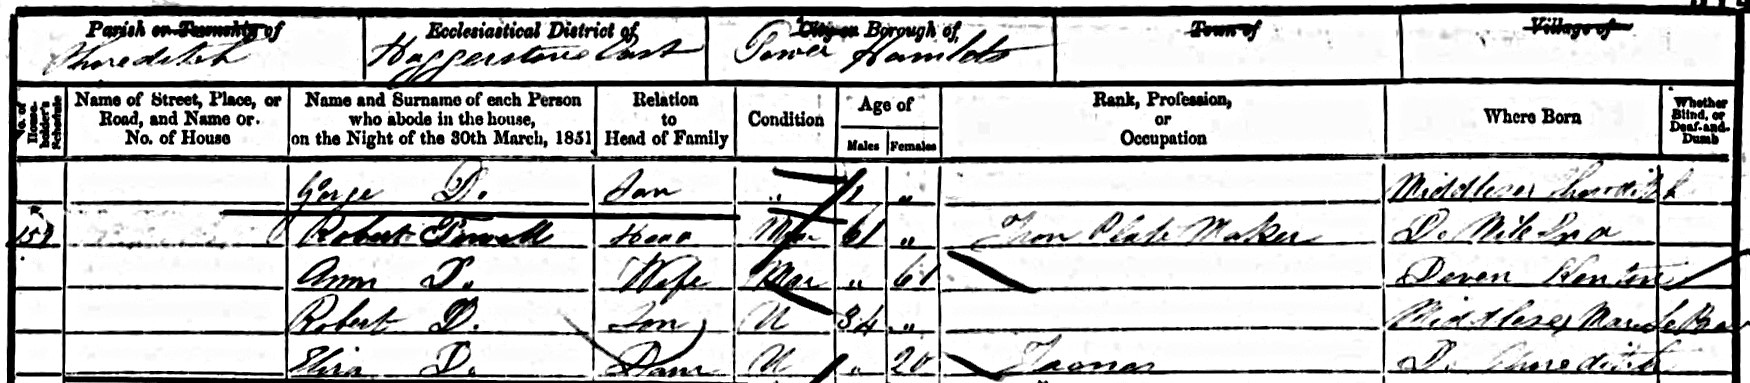 Parish or Township of
Shoreditch
Ecclesiastical District of
Haggerstone East
City or Borough of
Tower Hamlets
Town of
Village of
No. of House-holder's Schedule
Name of Street, Place, or Road, and Name or No. of House
Name and Surname of each Person who abode in the house, on the Night of the 30th March, 1851
Relation to Head of Family
Condition
Age of
Males Females
Rank, Profession, or Occupation
Where Born
Whether Blind, or Deaf-and-Dumb
George Do. Son " " Middlesex Shoreditch
Robert Head Mar 61 " Iron Plate Maker Do. Mile End
Ann Do. Wife Mar " 61 Devon
Robert Do. Son U 34 " Middlesex
Eliza Do. Daur U " 20 Do. Shoreditch